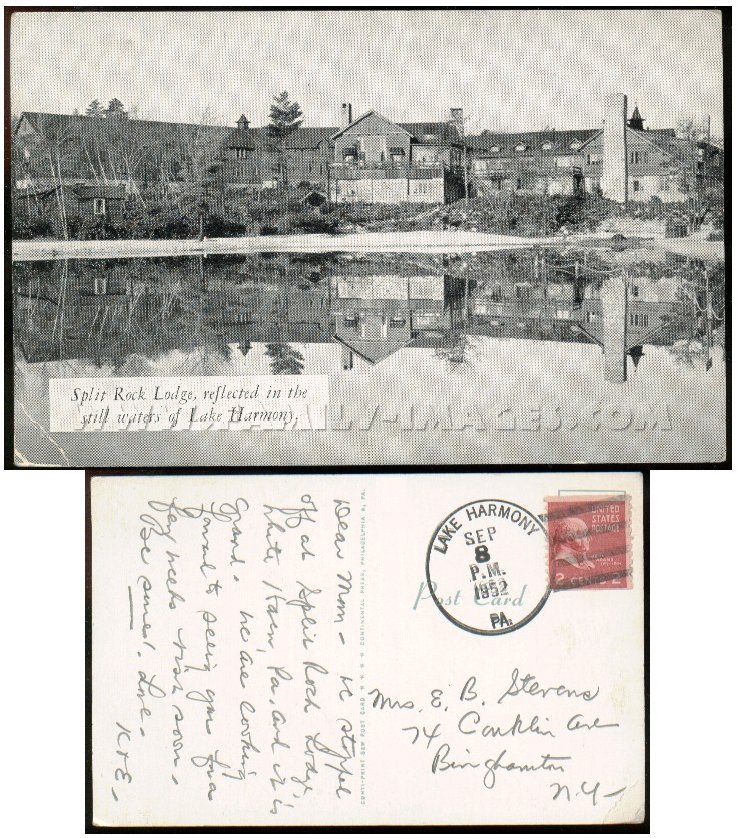 Split Rock Lodge, reflected in the
still waters of Lake Harmony.
WWW.FAMILY-IMAGES.COM
Dear Mom - We stopped
off at Split Rock Lodge,
White Haven, Pa. and it is
grand. We are looking
forward to seeing you for a
few weeks visit soon -
Be sure! Love -
K & E -
CONTI-PRINT GEM POST CARD * * * CONTINENTAL PRESS, PHILADELPHIA 5, PA.
LAKE HARMONY
SEP
8
P.M.
1952
PA.
UNITED
STATES
POSTAGE
2 CENTS
Post Card
Mrs. E. B. Stevens
74 Conklin Ave
Binghamton
N.Y -